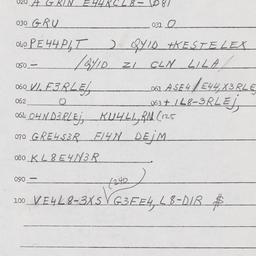 020 A GRIN E44XCL8- D81
030 GRU 031 O
040 PE44P1,T ) QYID +KESTELEX
050 - /QYID Z1 CLN LILA/
060 V1.F3RLEj, 061 ASE4/E44,X3RLE
062 O 063 + 1L8-3RLEj,
064 O4ND3RLEj, KU4LL,RN (125
070 GRE4S3R F14N DEjM
080 KL8E4N3R
090 -
(240
100 VE4L8-3XS G3FE4,L8-D1R $